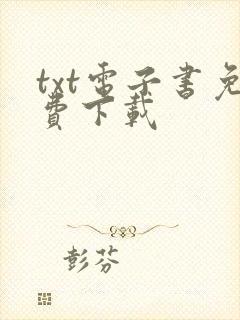 txt電子書免
費下載
彭芬